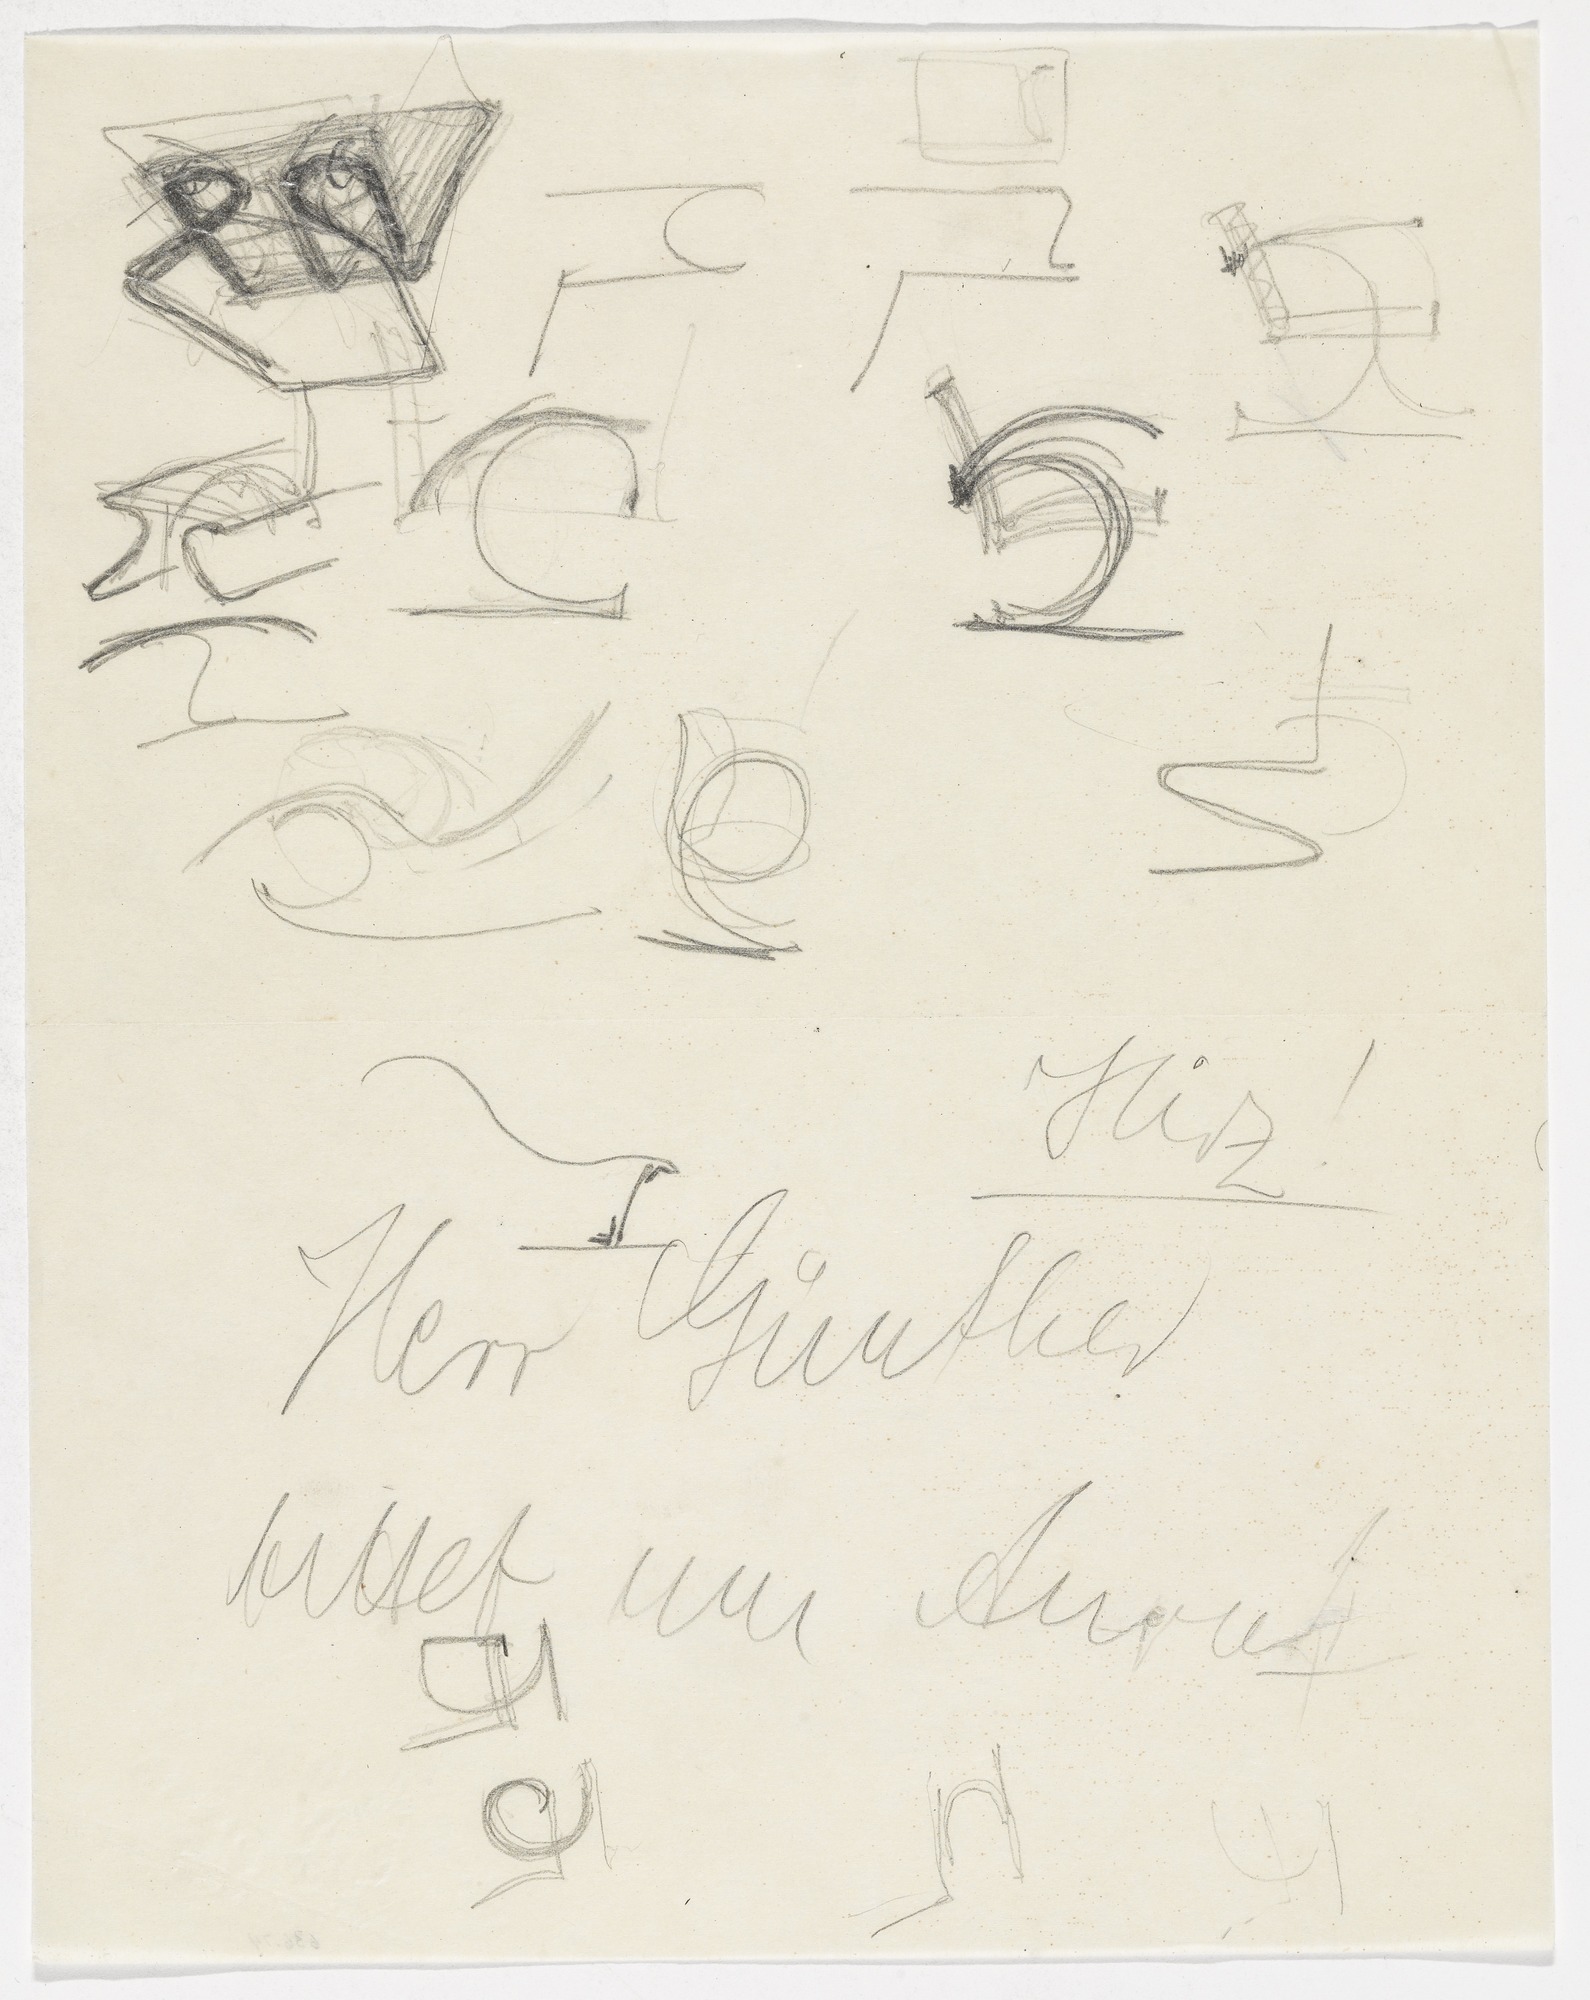 Hirz!
Herr Günther
bittet um Anruf